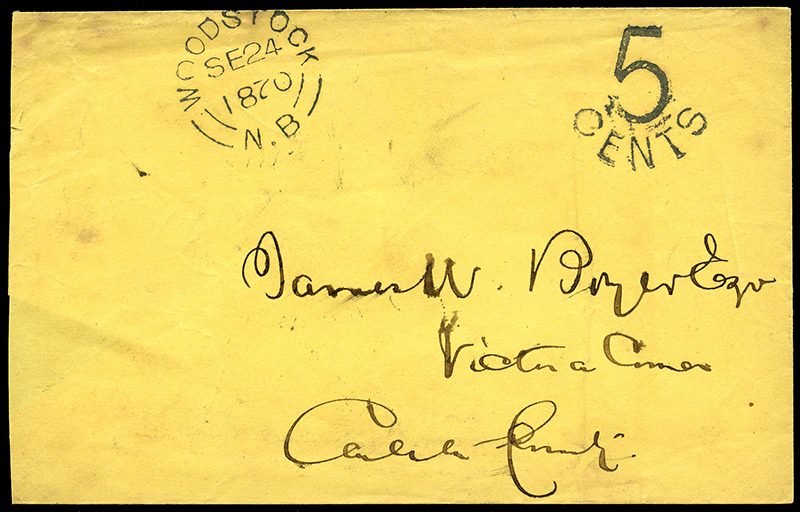 WOODSTOCK
SE 24
1870
N.B
5
CENTS
James W. Boyer Esqr
Victoria Corner
Carleton County